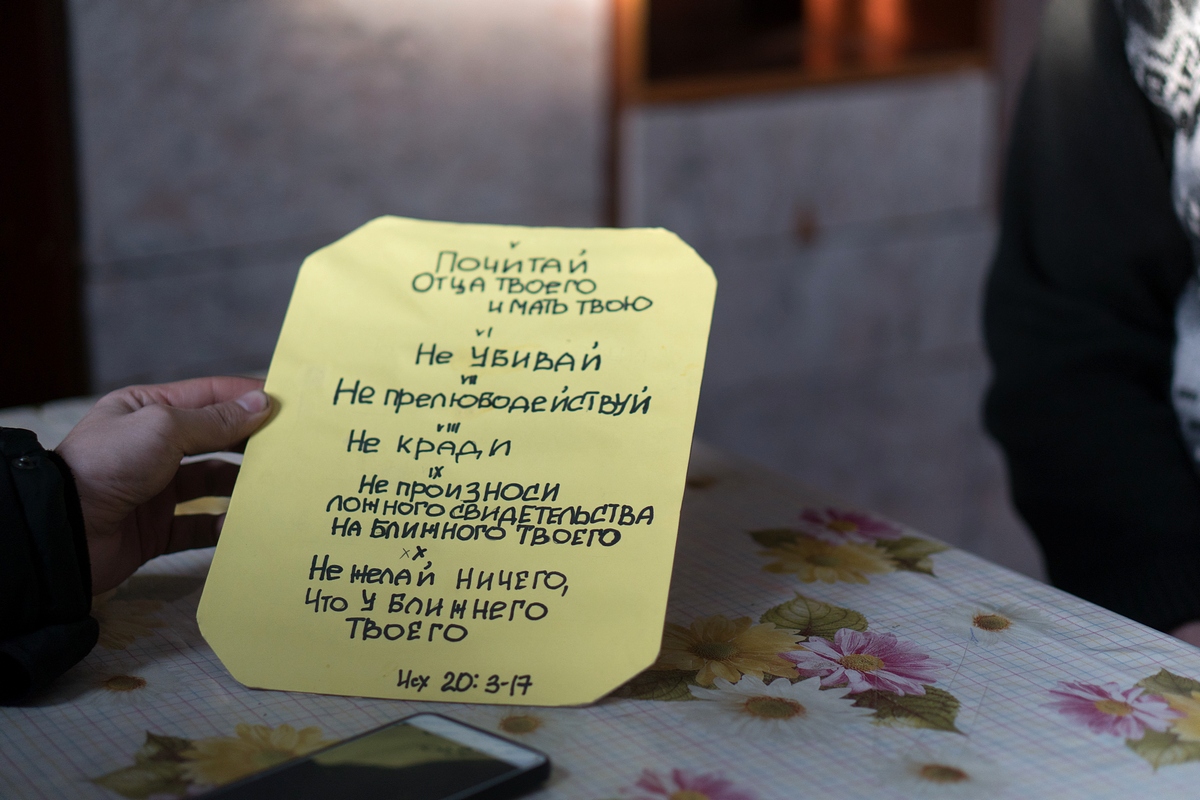 V
Почитай
Отца твоего
и мать твою
VI
Не убивай
VII
Не прелюбодействуй
VIII
Не кради
IX
Не произноси
ложного свидетельства
на ближного твоего
X X
Не желай ничего,
Что у ближнего
твоего
Исх 20: 3-17